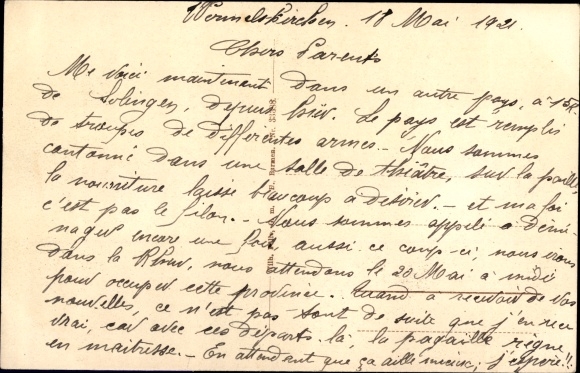 Wermelskirchen. 18 Mai 1921.
Chers Parents
Me voici maintenant dans un autre pays, à 15K.
de Solingen, depuis hier. Le pays est remplis
de troupes de différentes armes. - Nous sommes
cantonné dans une salle de théâtre, sur la paille,
la nourriture laisse beaucoup a désirer. - et ma foi
c'est pas le filon. - Nous sommes appelé a démé-
nager encore une fois aussi ce coup-ci, nous irons
dans la Rhur, nous attendons le 20 Mai a midi
pour occuper cette province. Quand a recevoir de vos
nouvelles, ce n'est pas sont de suite que j'en rece
vrai, car avec ces départs-là, la pagaille règne
en maitresse. - En attendant que ça aille mieux, j'espère!!